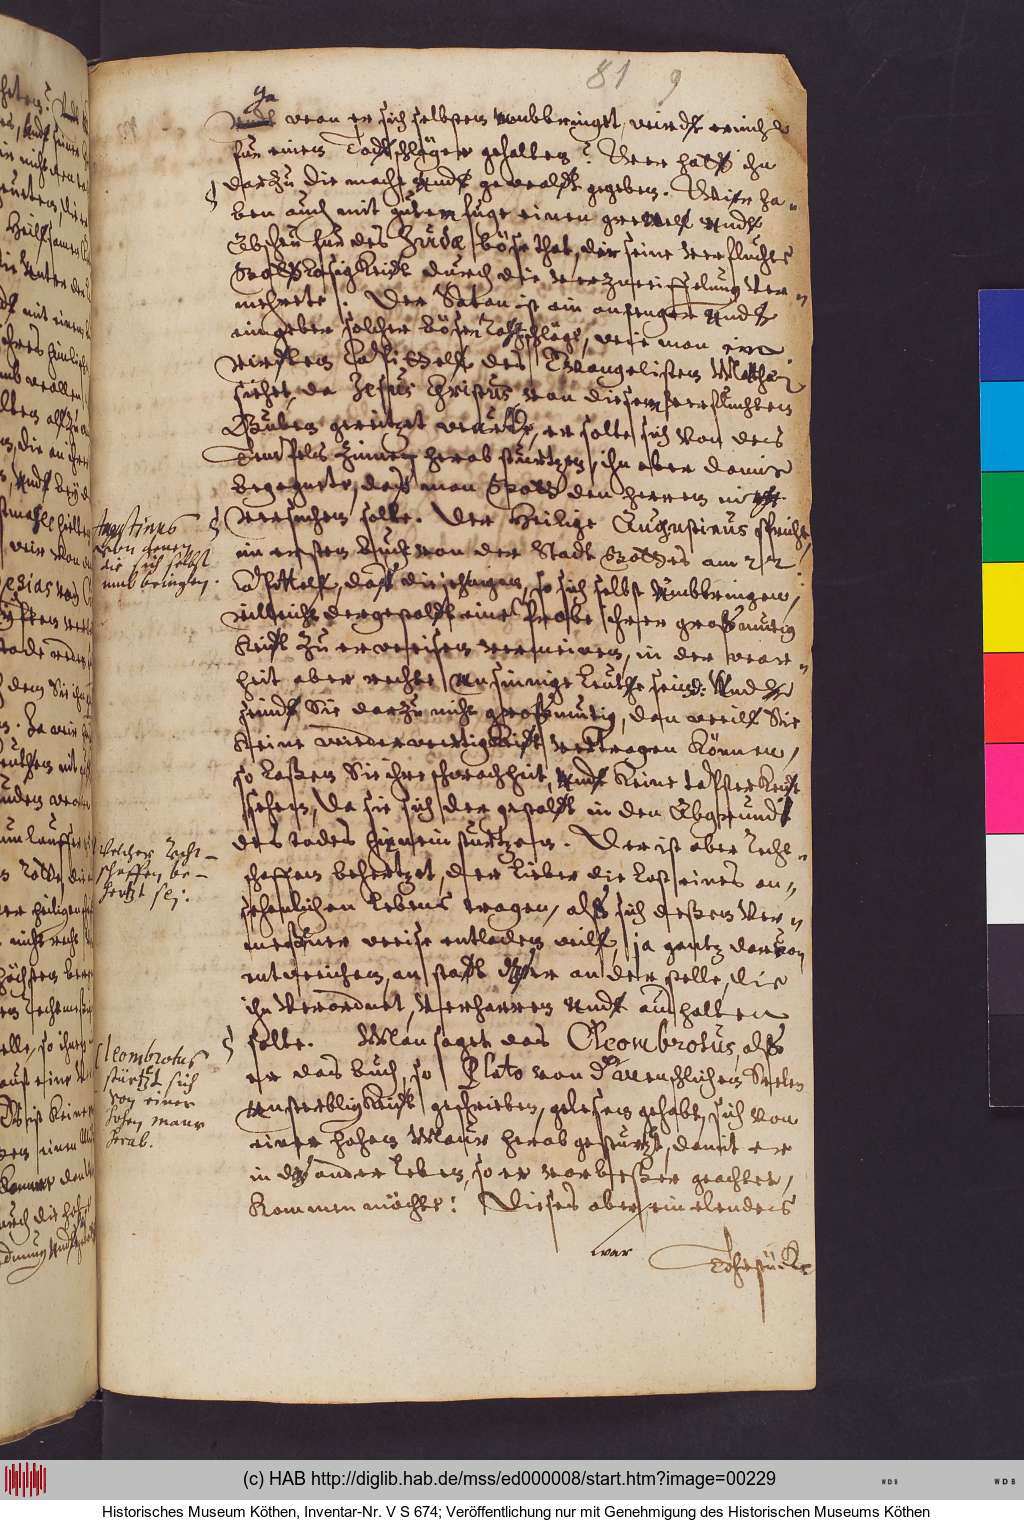 81 9
ja
undt wan er sich selbsten umbbringet, wirdt er nicht
für einen Todtschläger gehalten? Wer hatt ihn
darzu die macht undt gewaldt gegeben. Wir ha-
ben auch mit gutem fuge einen grewel undt
Abscheu für des Judæ böse that, der seine verfluchte
Gottlosigkeidt durch die verzweiffelung ver-
mehrete. Der Satan ist ein anfenger undt
eingeber solcher bösen Rahtschläge, wie man im
vierdten Capittell des Evangelisten Matthæi
siehet, da Jesus Christus, von diesem verfluchten
Buben gereitzet wurde, er solte sich von des
Tempels Zinnen herab stürtzen, ihn aber damit
begegnete, das man Gott den herren nicht
versuchen solte. Der Heilige Augustinus spricht
im ersten buch von der Stadt Gottes am 22
Capittell, das diejenigen, so sich selbst umbbringen,
villeicht dergestaldt eine Probe ihrer großmutig
keidt zu erweisen vermeinen, in der war-
heit aber rechte unsinnige leuthe seind: Undt
seindt Sie darzu nicht großmutig, dan weill Sie
keine wiederwertigkeidt vertragen können,
so laßen Sie ihre schwachheit, undt keine tapfferkeidt
sehen, da sie sich der gestaldt in den Abgrundt
des todes hinein stürtzen. Der ist aber Recht-
schaffen behertzet, der lieber die last eines an-
sehenlichen lebens tragen, alß sich deßen ver-
meßner weise entladen will, ja gantz darvon
entweichen, an stadt das er an der stelle, die
ihm verordnet, verharren undt aushalten
solte. Man saget das Cleombrotus, alß
er das buch, so Plato von der menschlichen Seelen
unsterbligkeidt geschrieben, gelesen gehabt, sich von
einer hohen Maur herab gesturtzt, damit er
in das ander leben, so er vor beßer geachtet,
kommen möchte: Dieses aber ein elendes
war
Augustinus
von denen
die sich selbst
umb bringen.
Welcher Recht-
schaffen be-
hertzt sej.
Cleombrotus
stürtzt sich
von einer
hohen maur
herab.
(c) HAB http://diglib.hab.de/mss/ed000008/start.htm?image=00229
Historisches Museum Köthen, Inventar-Nr. V S 674; Veröffentlichung nur mit Genehmigung des Historischen Museums Köthen